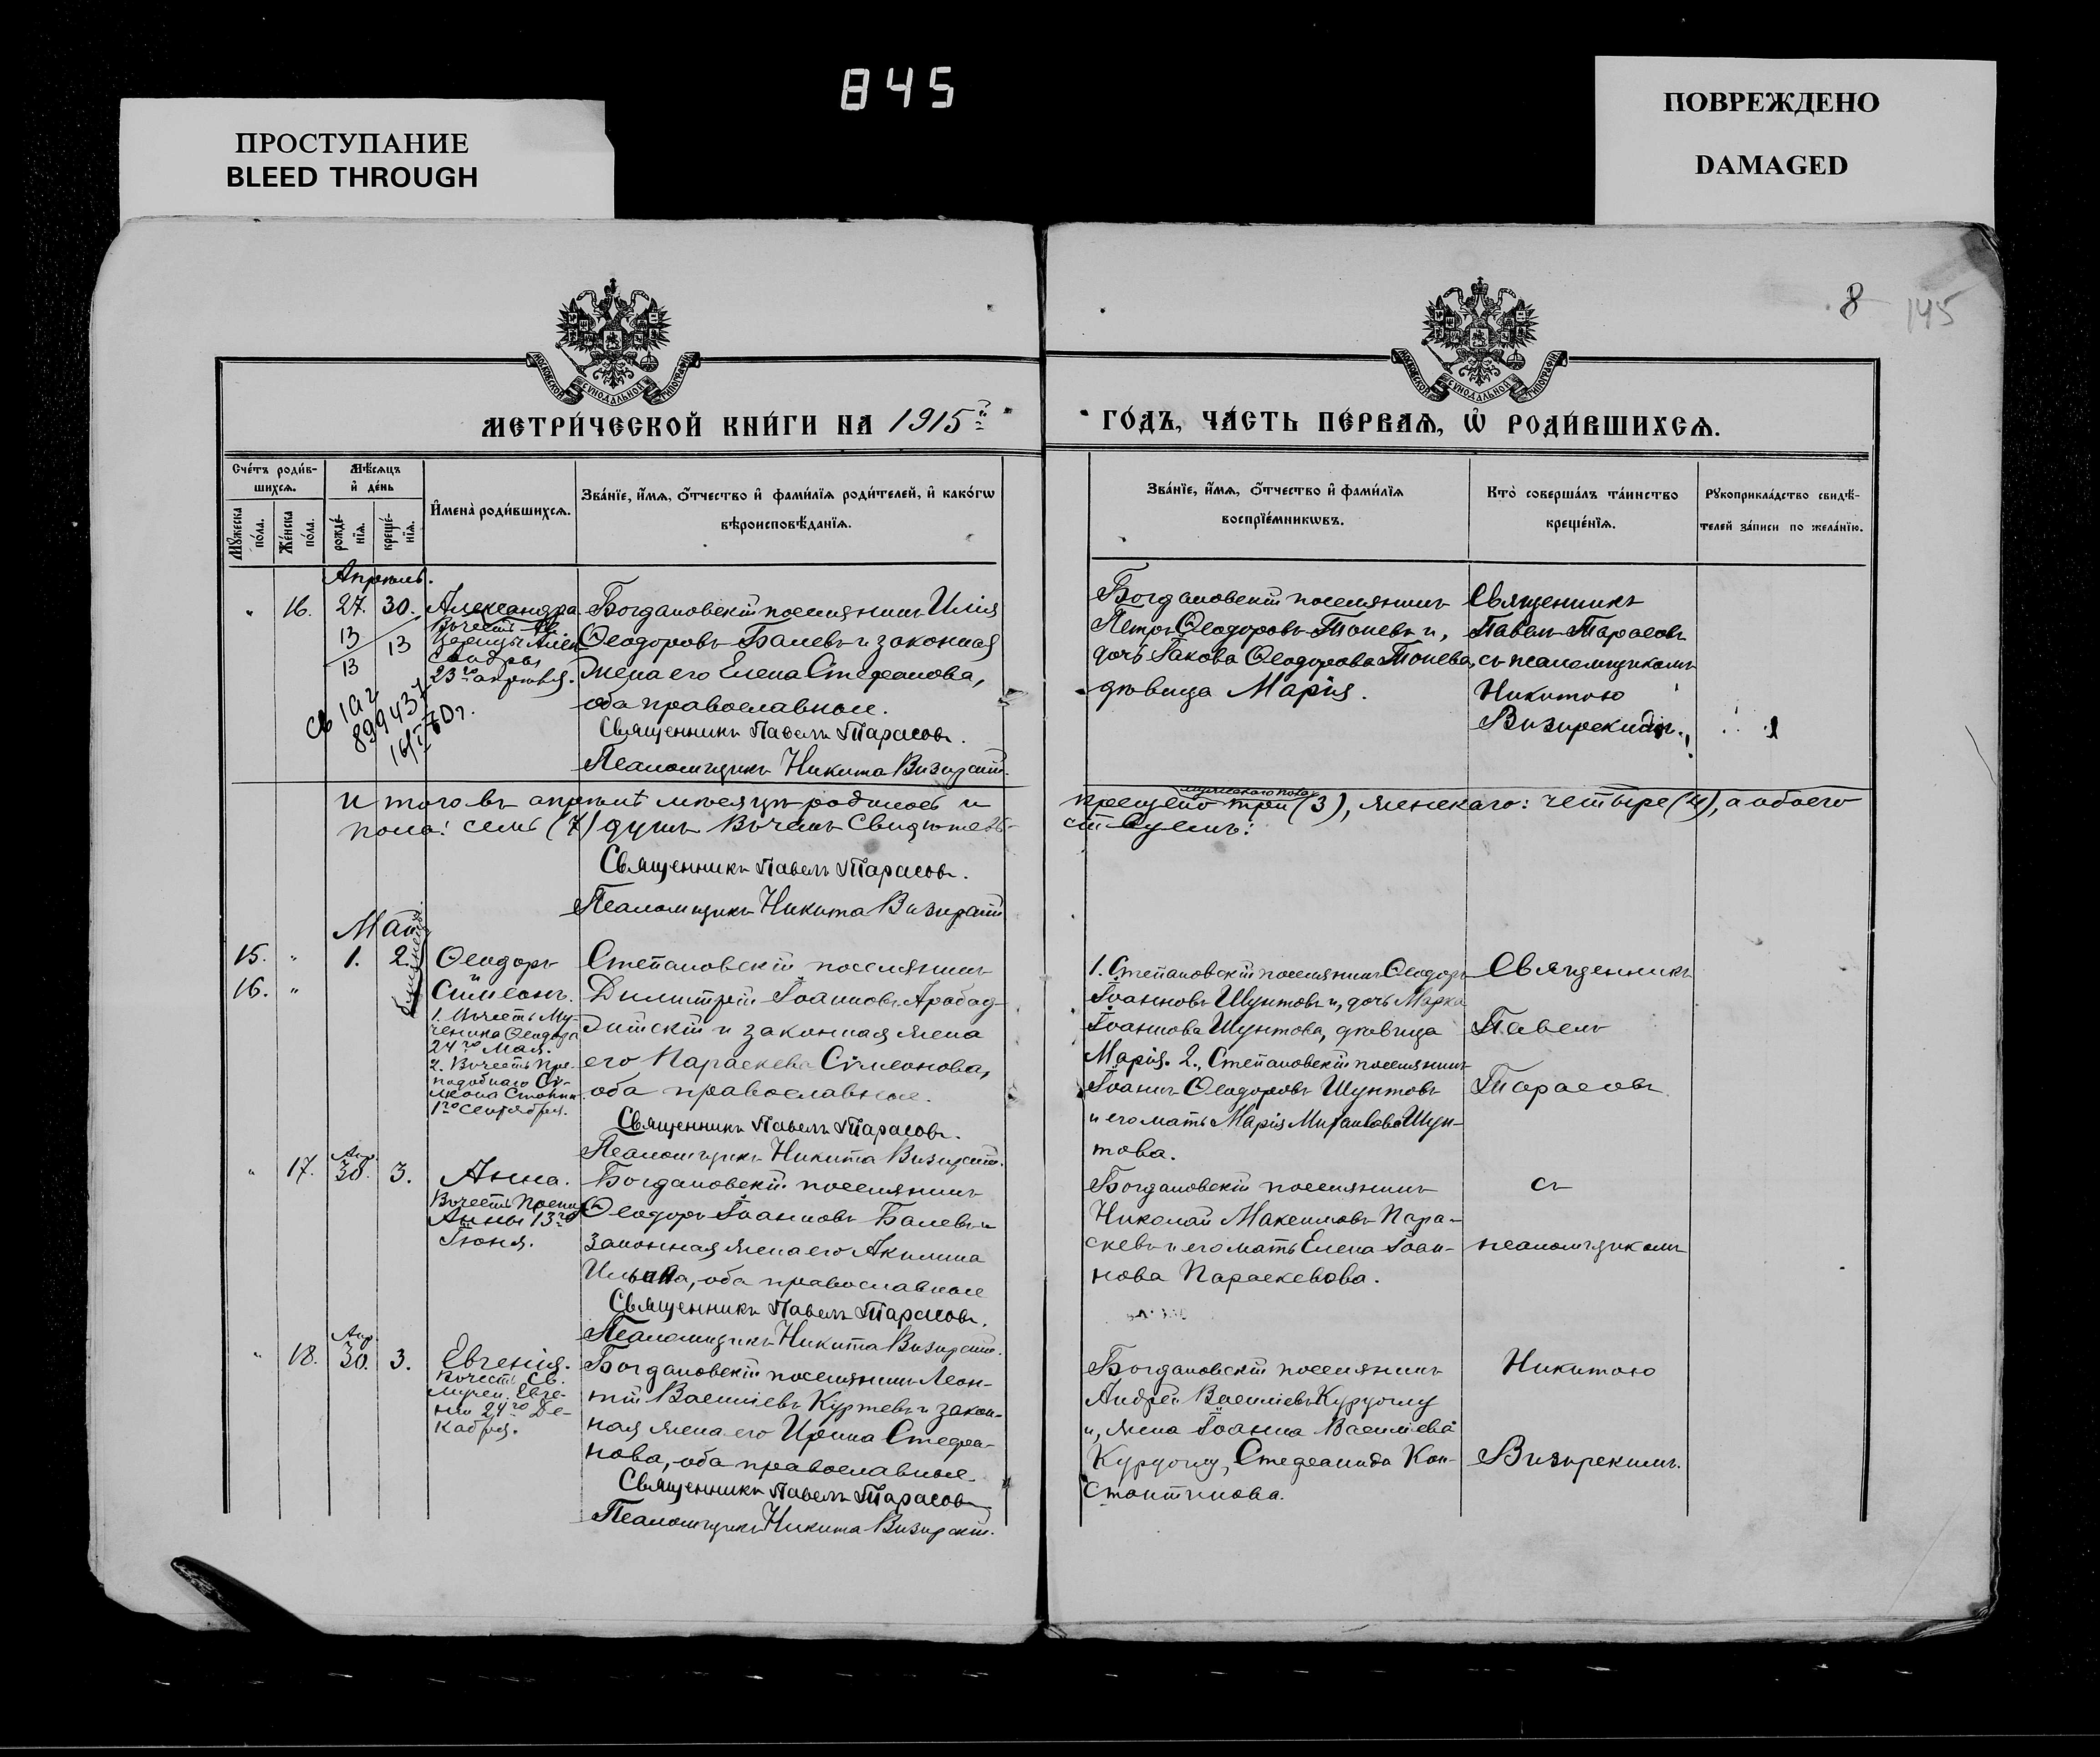 845
ПРОСТУПАНИЕ
BLEED THROUGH
ПОВРЕЖДЕНО
DAMAGED
8 145
МОСКОВСКОЙ СѴНОДАЛЬНОЙ ТИПОГРАФІИ
МОСКОВСКОЙ СѴНОДАЛЬНОЙ ТИПОГРАФІИ
МЕТРИ́ЧЕСКОЙ КНИ́ГИ НА 1915й
ГО́ДЪ, ЧА́СТЬ ПЕ́РВАѦ, Ѡ҆ РОДИ́ВШИХСѦ.
Сче́тъ роди́в-
шихсѧ.
Мѣ́сѧцъ
и҆ де́нь
Мꙋ́жеска по́ла.
Же́нска по́ла.
рожде́-
нїѧ.
креще́-
нїѧ.
И҆мена̀ роди́вшихсѧ.
Зва́нїе, и҆́мѧ, ѻ҆́тчество и҆ фами́лїѧ роди́телей, и҆ како́гѡ
вѣроисповѣ́данїѧ.
Зва́нїе, и҆́мѧ, ѻ҆́тчество и҆ фами́лїѧ
воспрїе́мникѡвъ.
Кто̀ соверша́лъ та́инство
креще́нїѧ.
Рꙋкоприкла́дство свидѣ́-
телей за́писи по жела́нїю.
Апрѣль.
" 16. 27. 30. Александра
13 13
13
Въ честь Св.
Царицы Алек
сандры
23го апрѣля.
Св 1 аг
899437
16/I 70 г.
Богдановскій поселянинъ Илія
Ѳеодоровъ Балевъ и законная
жена его Елена Стефанова,
оба православные.
Священникъ Павелъ Тарасовъ.
Псаломщикъ Никита Визирскій.
Богдановскій поселянинъ
Петръ Ѳеодоровъ Тоневъ и,
дочь Іакова Ѳеодорова Тонева,
дѣвица Марія.
Священникъ
Павелъ Тарасовъ
съ псаломщикомъ
Никитою
Визирскимъ.
Итого въ апрѣлѣ мѣсяцѣ родилось и
крещено мужескаго пола три (3), женскаго: четыре (4), а обоего
пола: семь (7) душъ. Въ чемъ свидѣтель-
ствуемъ:
Священникъ Павелъ Тарасовъ.
Псаломщикъ Никита Визирскій
Май
15. " 1. 2. Ѳеодоръ
и
16. " Симеонъ.
1. Въ честь Му-
ченика Ѳеодора
24го Мая.
2. Въ честь Пре-
подобнаго Си-
меона Столпн.
1го сентября.
Степановскій поселянинъ
Димитрій Іоанновъ Арабад-
жійскій и законная жена
его Параскева Симеонова,
оба православные.
Священникъ Павелъ Тарасовъ.
Псаломщикъ Никита Визирскій.
1. Степановскій поселянинъ Ѳеодоръ
Іоанновъ Шунтовъ и, дочь Марка
Іоаннова Шунтова, дѣвица
Марія. 2., Степановскій поселянинъ
Іоаннъ Ѳеодоровъ Шунтовъ
и его мать Марія Михаилова Шун-
това.
Священникъ
Павелъ
Тарасовъ
" 17. Апр. 30. 3. Анна.
Въ честь Препод
Анны 13го
Іюня.
Богдановскій поселянинъ
Ѳеодоръ Іоанновъ Балевъ и
законная жена его Акилина
Ильева, оба православные
Священникъ Павелъ Тарасовъ.
Псаломщикъ Никита Визирскій.
Богдановскій поселянинъ
Николай Максимовъ Пара-
скевъ и его мать Елена Іоан-
нова Параскевова.
съ
псаломщикомъ
" 18. Апр. 30. 3. Евгенія.
Въ честь Св.
мучен. Евге-
ніи 24го Де-
кабря.
Богдановскій поселянинъ Леон-
тій Василіевъ Куртевъ и закон-
ная жена его Ирина Стефа-
нова, оба православные.
Священникъ Павелъ Тарасовъ
Псаломщикъ Никита Визирскій.
Богдановскій поселянинъ
Андрей Василіевъ Куруоглу
и, жена Іоанна Василіева
Куруоглу, Стефанида Кон-
стантинова.
Никитою
Визирскимъ.